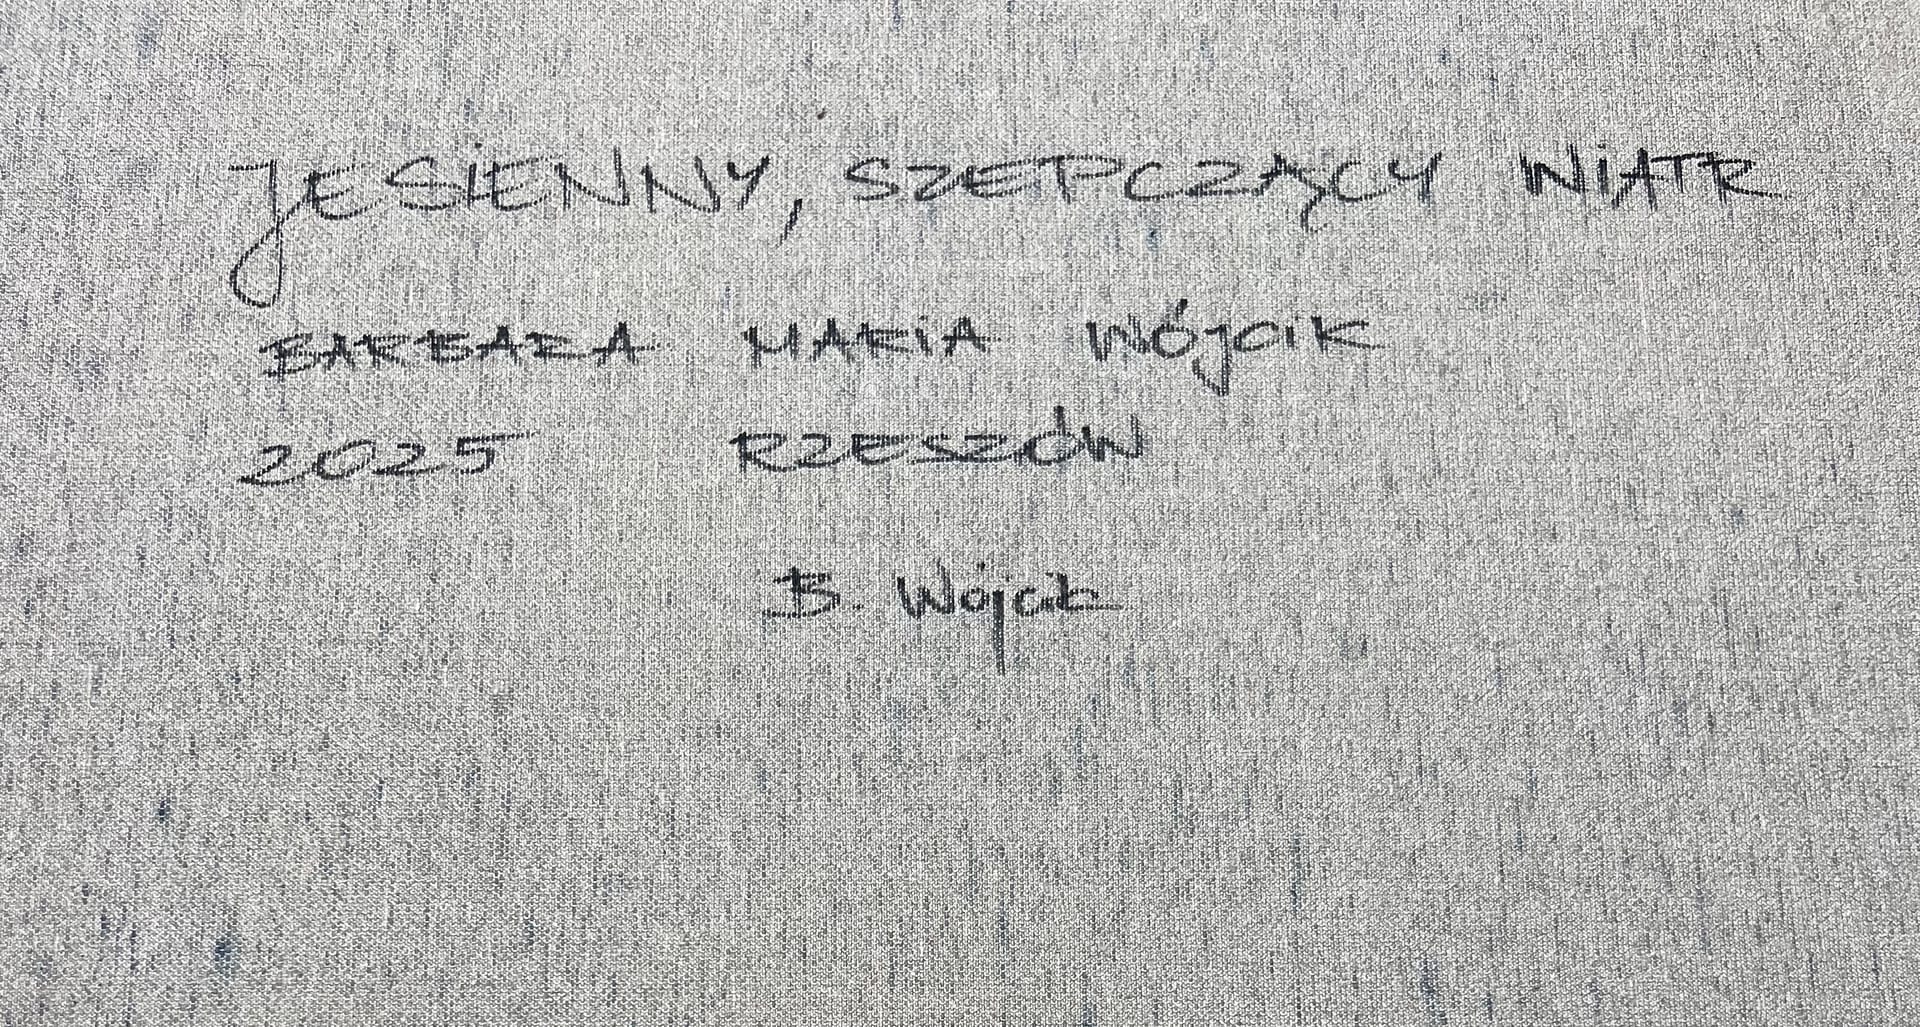 JESIENNY, SZEPCZĄCY WIATR
BARBARA MARIA WÓJCIK
2025 RZESZÓW
B. Wójcik